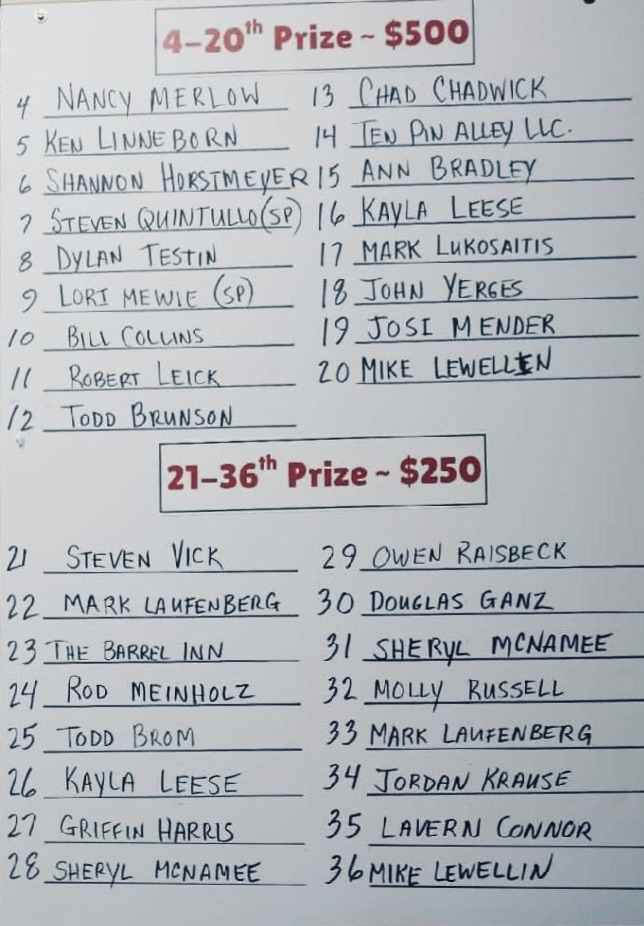 4–20th Prize ~ $500
4 NANCY MERLOW
5 KEN LINNEBORN
6 SHANNON HORSTMEYER
7 STEVEN QUINTULLO (SP)
8 DYLAN TESTIN
9 LORI MEWIE (SP)
10 BILL COLLINS
11 ROBERT LEICK
12 TODD BRUNSON
13 CHAD CHADWICK
14 TEN PIN ALLEY LLC.
15 ANN BRADLEY
16 KAYLA LEESE
17 MARK LUKOSAITIS
18 JOHN YERGES
19 JOSI MENDER
20 MIKE LEWELLIN
21–36th Prize ~ $250
21 STEVEN VICK
22 MARK LAUFENBERG
23 THE BARREL INN
24 ROD MEINHOLZ
25 TODD BROM
26 KAYLA LEESE
27 GRIFFIN HARRIS
28 SHERYL MCNAMEE
29 OWEN RAISBECK
30 DOUGLAS GANZ
31 SHERYL MCNAMEE
32 MOLLY RUSSELL
33 MARK LAUFENBERG
34 JORDAN KRAUSE
35 LAVERN CONNOR
36 MIKE LEWELLIN